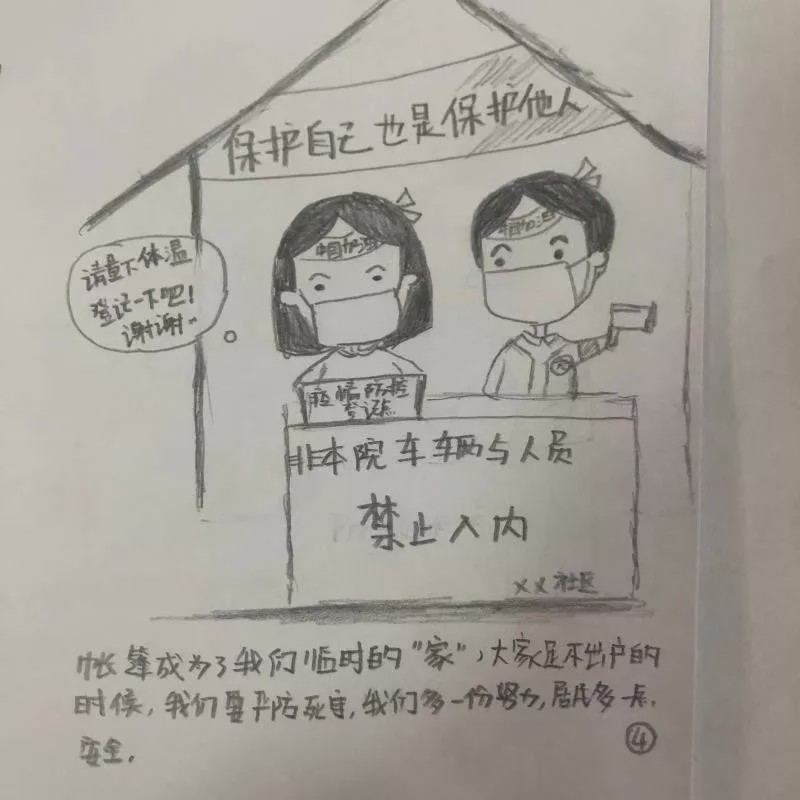 保护自己也是保护他人
中国加油
中国加油
请量下体温
登记一下吧!
谢谢..
疫情防控
登记点
非本院车辆与人员
禁止入内
××社区
帐篷成为了我们临时的“家”,大家足不出户的
时候,我们要严防死守,我们多一份努力,居民多一点
安全.
④